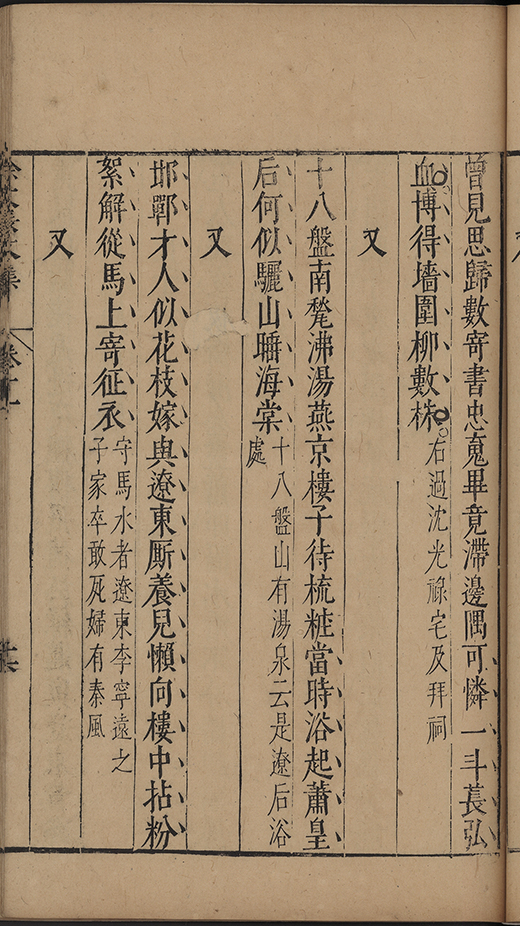 曾見思歸數寄書忠䰟畢竟滯邊隅可憐一斗萇弘
血博得墻圍柳數株右過沈光祿宅及拜祠
又
十八盤南甃沸湯燕京樓子待梳粧當時浴起蕭皇
后何似驪山睡海棠十八盤山有湯泉云是遼后浴
處
又
邯鄲才人似花枝嫁與遼東厮養兒懶向樓中拈粉
絮解從馬上寄征衣守馬水者遼東李寧遠之
子家卒敢死婦有秦風
又
卷十一